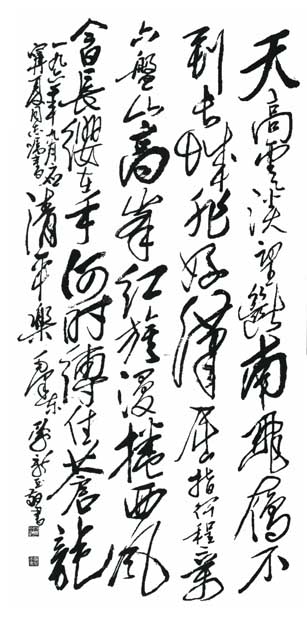 天高雲淡望斷南飛雁不
到長城非好漢屈指行程二万
六盤山上高峯紅旗漫捲西風
今日長纓在手何時縛住蒼龍
一九六一年九月
寧夏同志囑書
清平樂 毛澤東
書